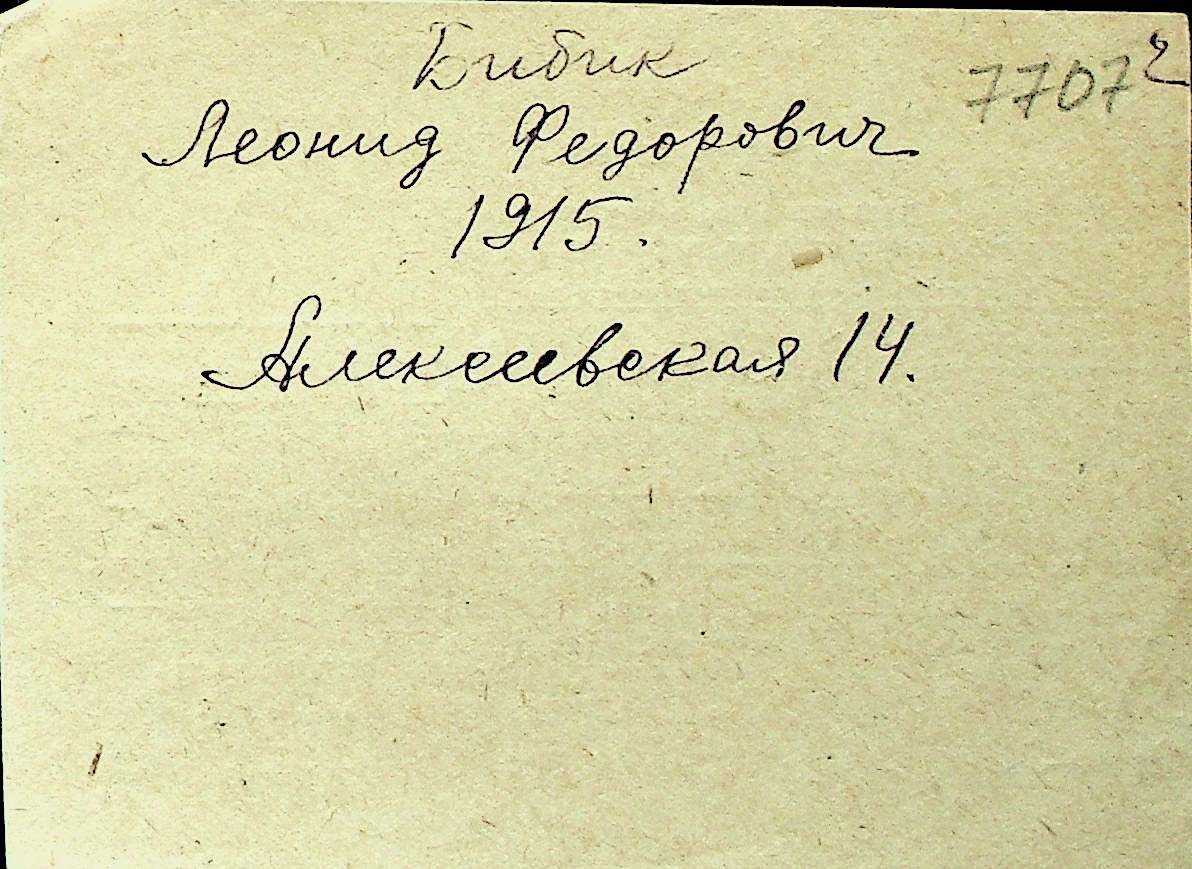 Бибик
7707 ч
Леонид Федорович
1915.
Алексеевская 14.